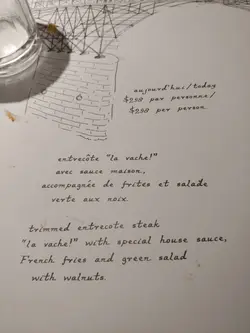 aujourd'hui/today
par personne/
per person
entrecôte "la vache!"
avec sauce maison,
accompagnée de frites et salade
verte aux noix.
trimmed entrecote steak
"la vache!" with special house sauce,
French fries and green salad
with walnuts.